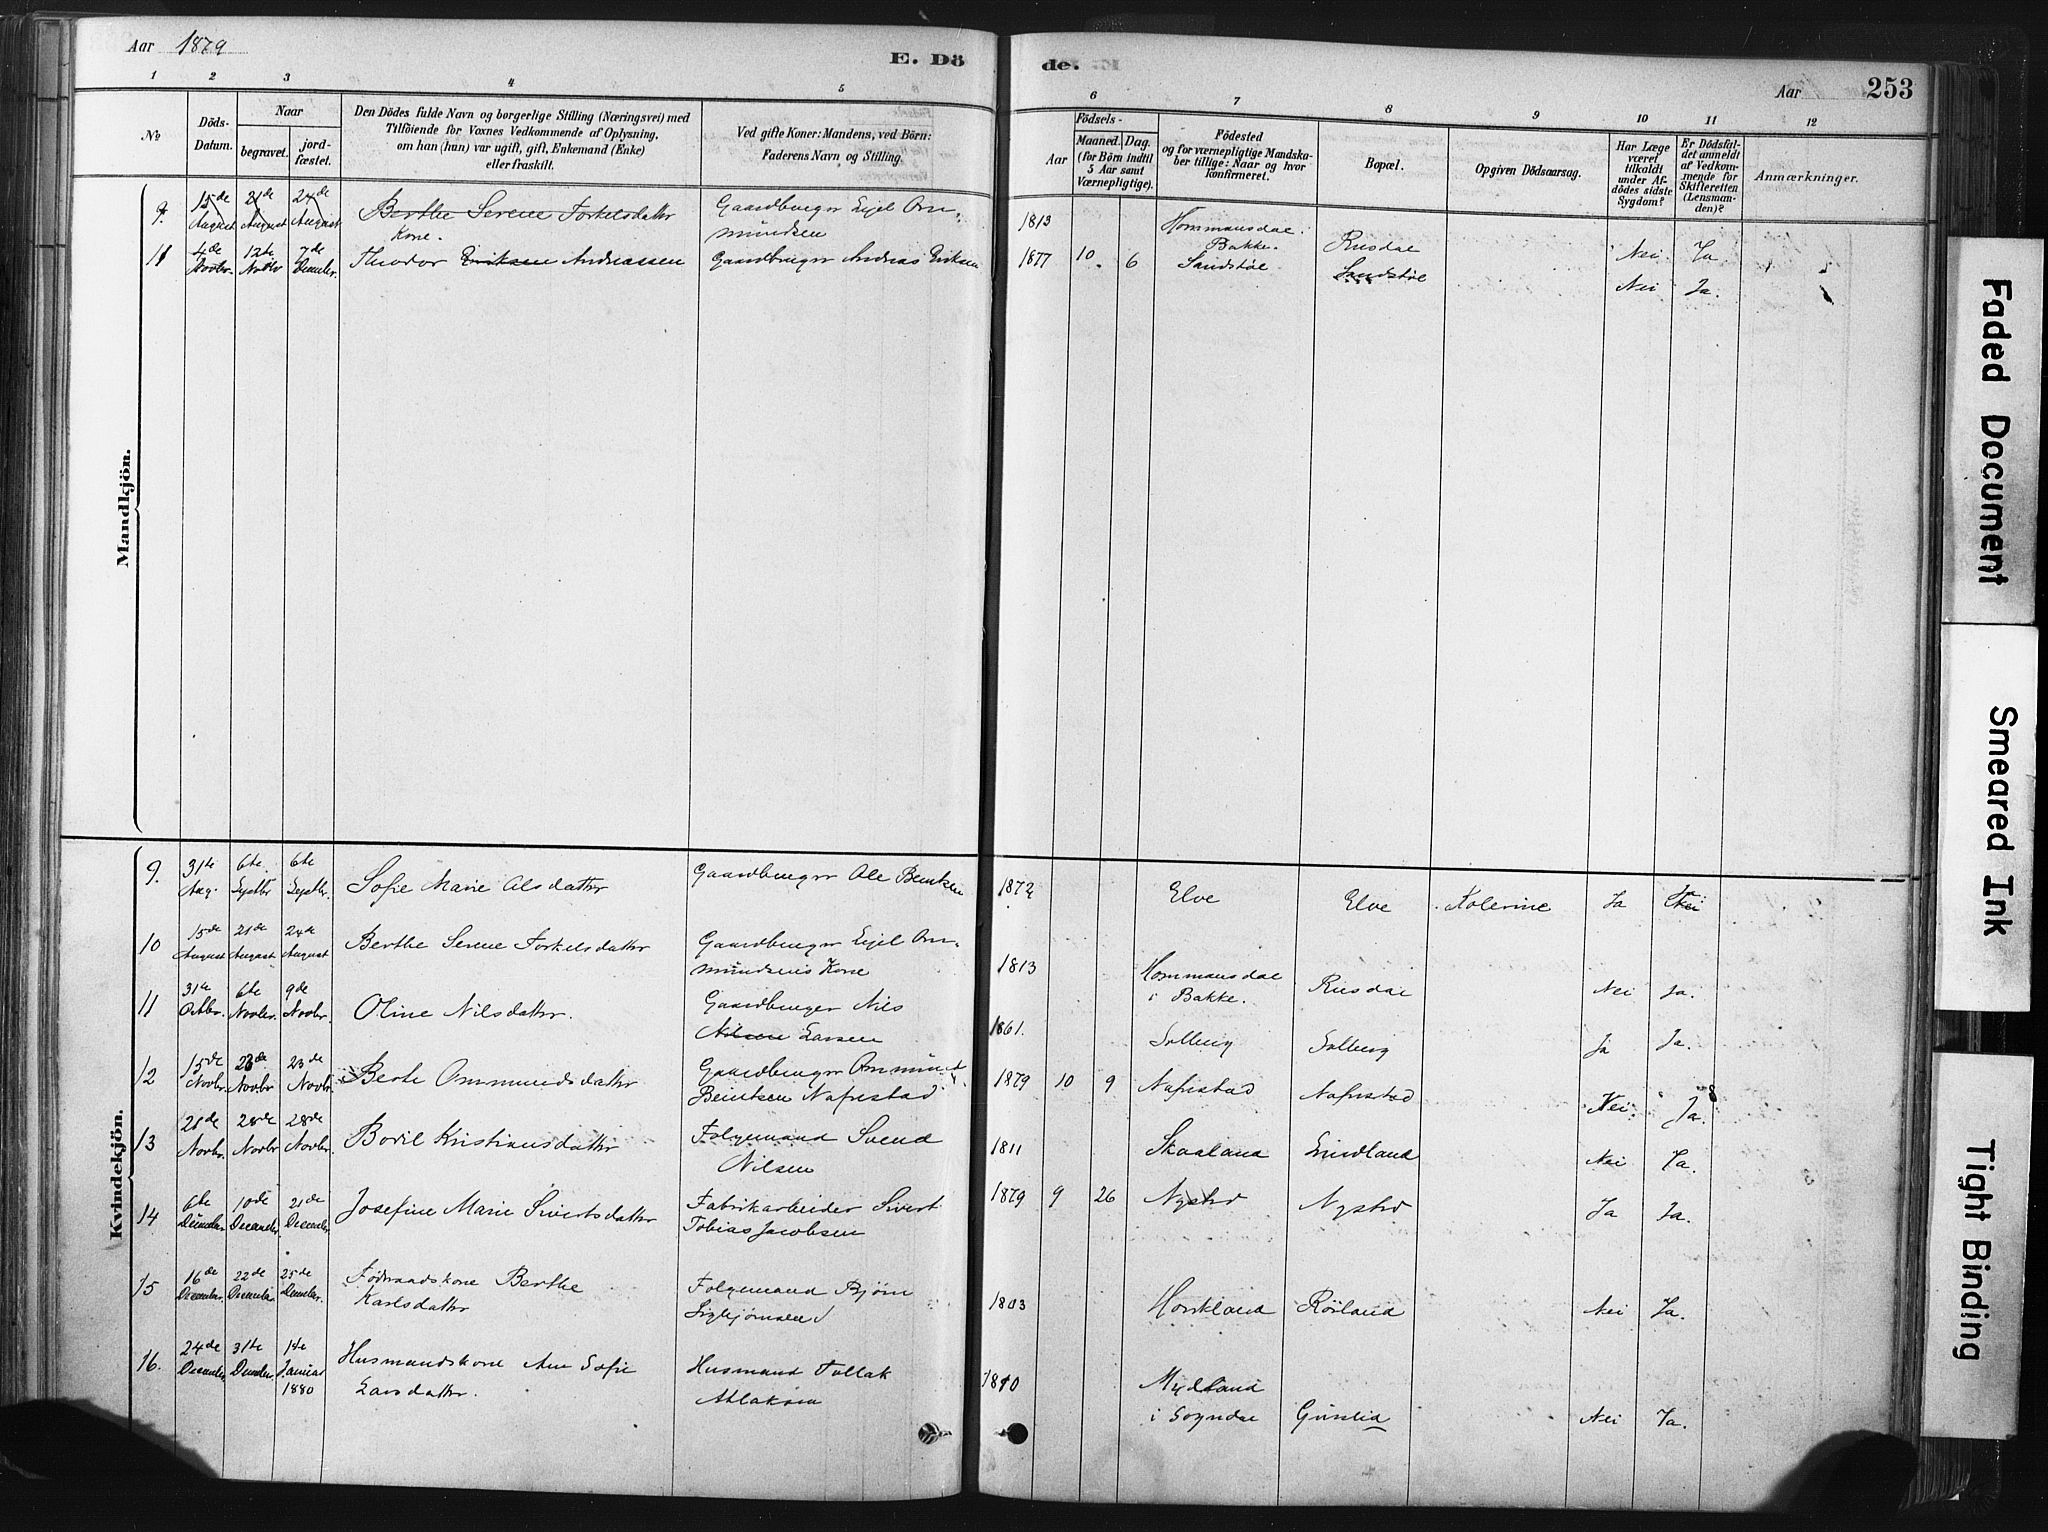 Aar 1879
E. Dö
de.
Aar
253
1 2 3 4 5 6 7 8 9 10 11 12
No
Döds-
Datum.
Naar
begravet.
jord-
fæstet.
Den Dödes fulde Navn og borgerlige Stilling (Næringsvei) med
Tilföiende for Voxnes Vedkommende af Oplysning,
om han (hun) var ugift, gift, Enkemand (Enke)
eller fraskilt.
Ved gifte Koner: Mandens, ved Börn:
Faderens Navn og Stilling.
Födsels-
Aar
Maaned.
Dag.
(for Börn indtil
5 Aar samt
Værnepligtige).
Födested
og for værnepligtige Mandska-
ber tillige: Naar og hvor
konfirmeret.
Bopæl.
Opgiven Dödsaarsag.
Har Læge
været
tilkaldt
under Af-
dödes sidste
Sygdom?
Er Dödsfal-
det anmeldt
af Vedkom-
mende for
Skifteretten
(Lensman-
den)?
Anmærkninger.
Mandkjön.
9. 15de 21de 24de Berthe Serene Torkelsdatter Gaardbruger Ejel Om-
August August August Kone. mundsen
1813 Hommansdal i
Bakke. Rusdal Nei. Ja
11 4de 12te 7de Theodor Eriksen Andreassen Gaardbruger Andreas Eriksen
Novbr. Novbr December.
1877 10 6 Sandstøl Sandstøl Nei Ja.
Kvindekjön.
9. 31te 6te 6te Sofie Marie Olsdatter Gaardbruger Ole Bentsen
Aug. Septbr Septbr.
1872 Elve Elve Kolerine Ja Nei
10 15de 21de 24de Berthe Serene Torkelsdatter Gaardbruger Ejel Om-
August August August mundsens Kone
1813 Hommansdal
i Bakke. Rusdal Nei Ja.
11 31te 6te 9de Oline Nilsdatter. Gaardbruger Nils
Octbr. Novbr. Novbr. Nilsen Larsen
1861. Solberg Solberg Ja Ja.
12 15de 23de 23de Berte Ommundsdatter Gaardbruger Ommund
Novbr. Novbr Novbr. Beintsen Nafrestad
1879 10 9 Nafrestad Nafrestad Nei. Ja.
13 21de 28de 28de Boril Kristiansdatter Folgemand Svend
Novbr. Novbr Novbr. Nilsen
1811 Skaaland Eindland Nei Ja.
14 6te 10de 21de Josefine Marie Sivertsdatter Fabrikarbeider Sivert
December. December. December. Tobias Jacobsen
1879 9 26 Nysted Nysted Ja Ja.
15 16de 22de 25de Føderaadskone Berthe Folgemand Bjørn
December. December. December. Karlsdatter Sigbjørnsen
1803 Houkland Røiland Nei Ja.
16. 24de 31te 1ste Husmandskone Ane Sofie Husmand Tollak
December. December. Januar 1880 Larsdatter. Atlaksen
1810 Mydland
i Sogndal Grunlid Nei Ja.
Faded Document
Smeared Ink
Tight Binding